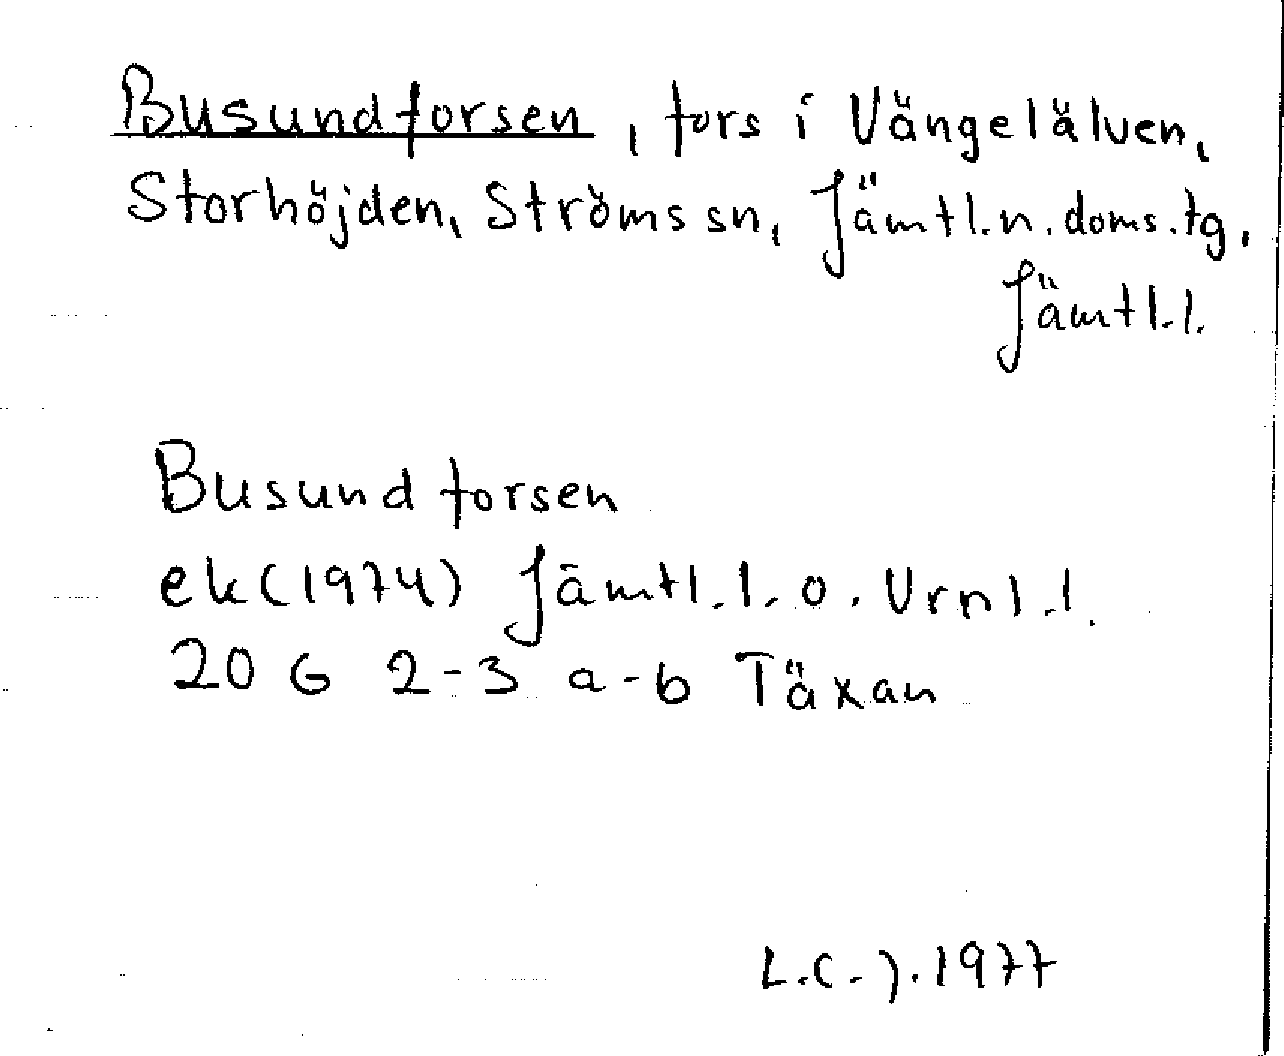 Busundforsen, fors i Vängelälven,
Storhöjden, Ströms sn, Jämtl.n.doms.tg,
Jämtl.l.
Busundforsen
ek(1974) Jämtl.l.o.Vrnl.l.
20 G 2-3 a-b Täxan
L.C.J.1977